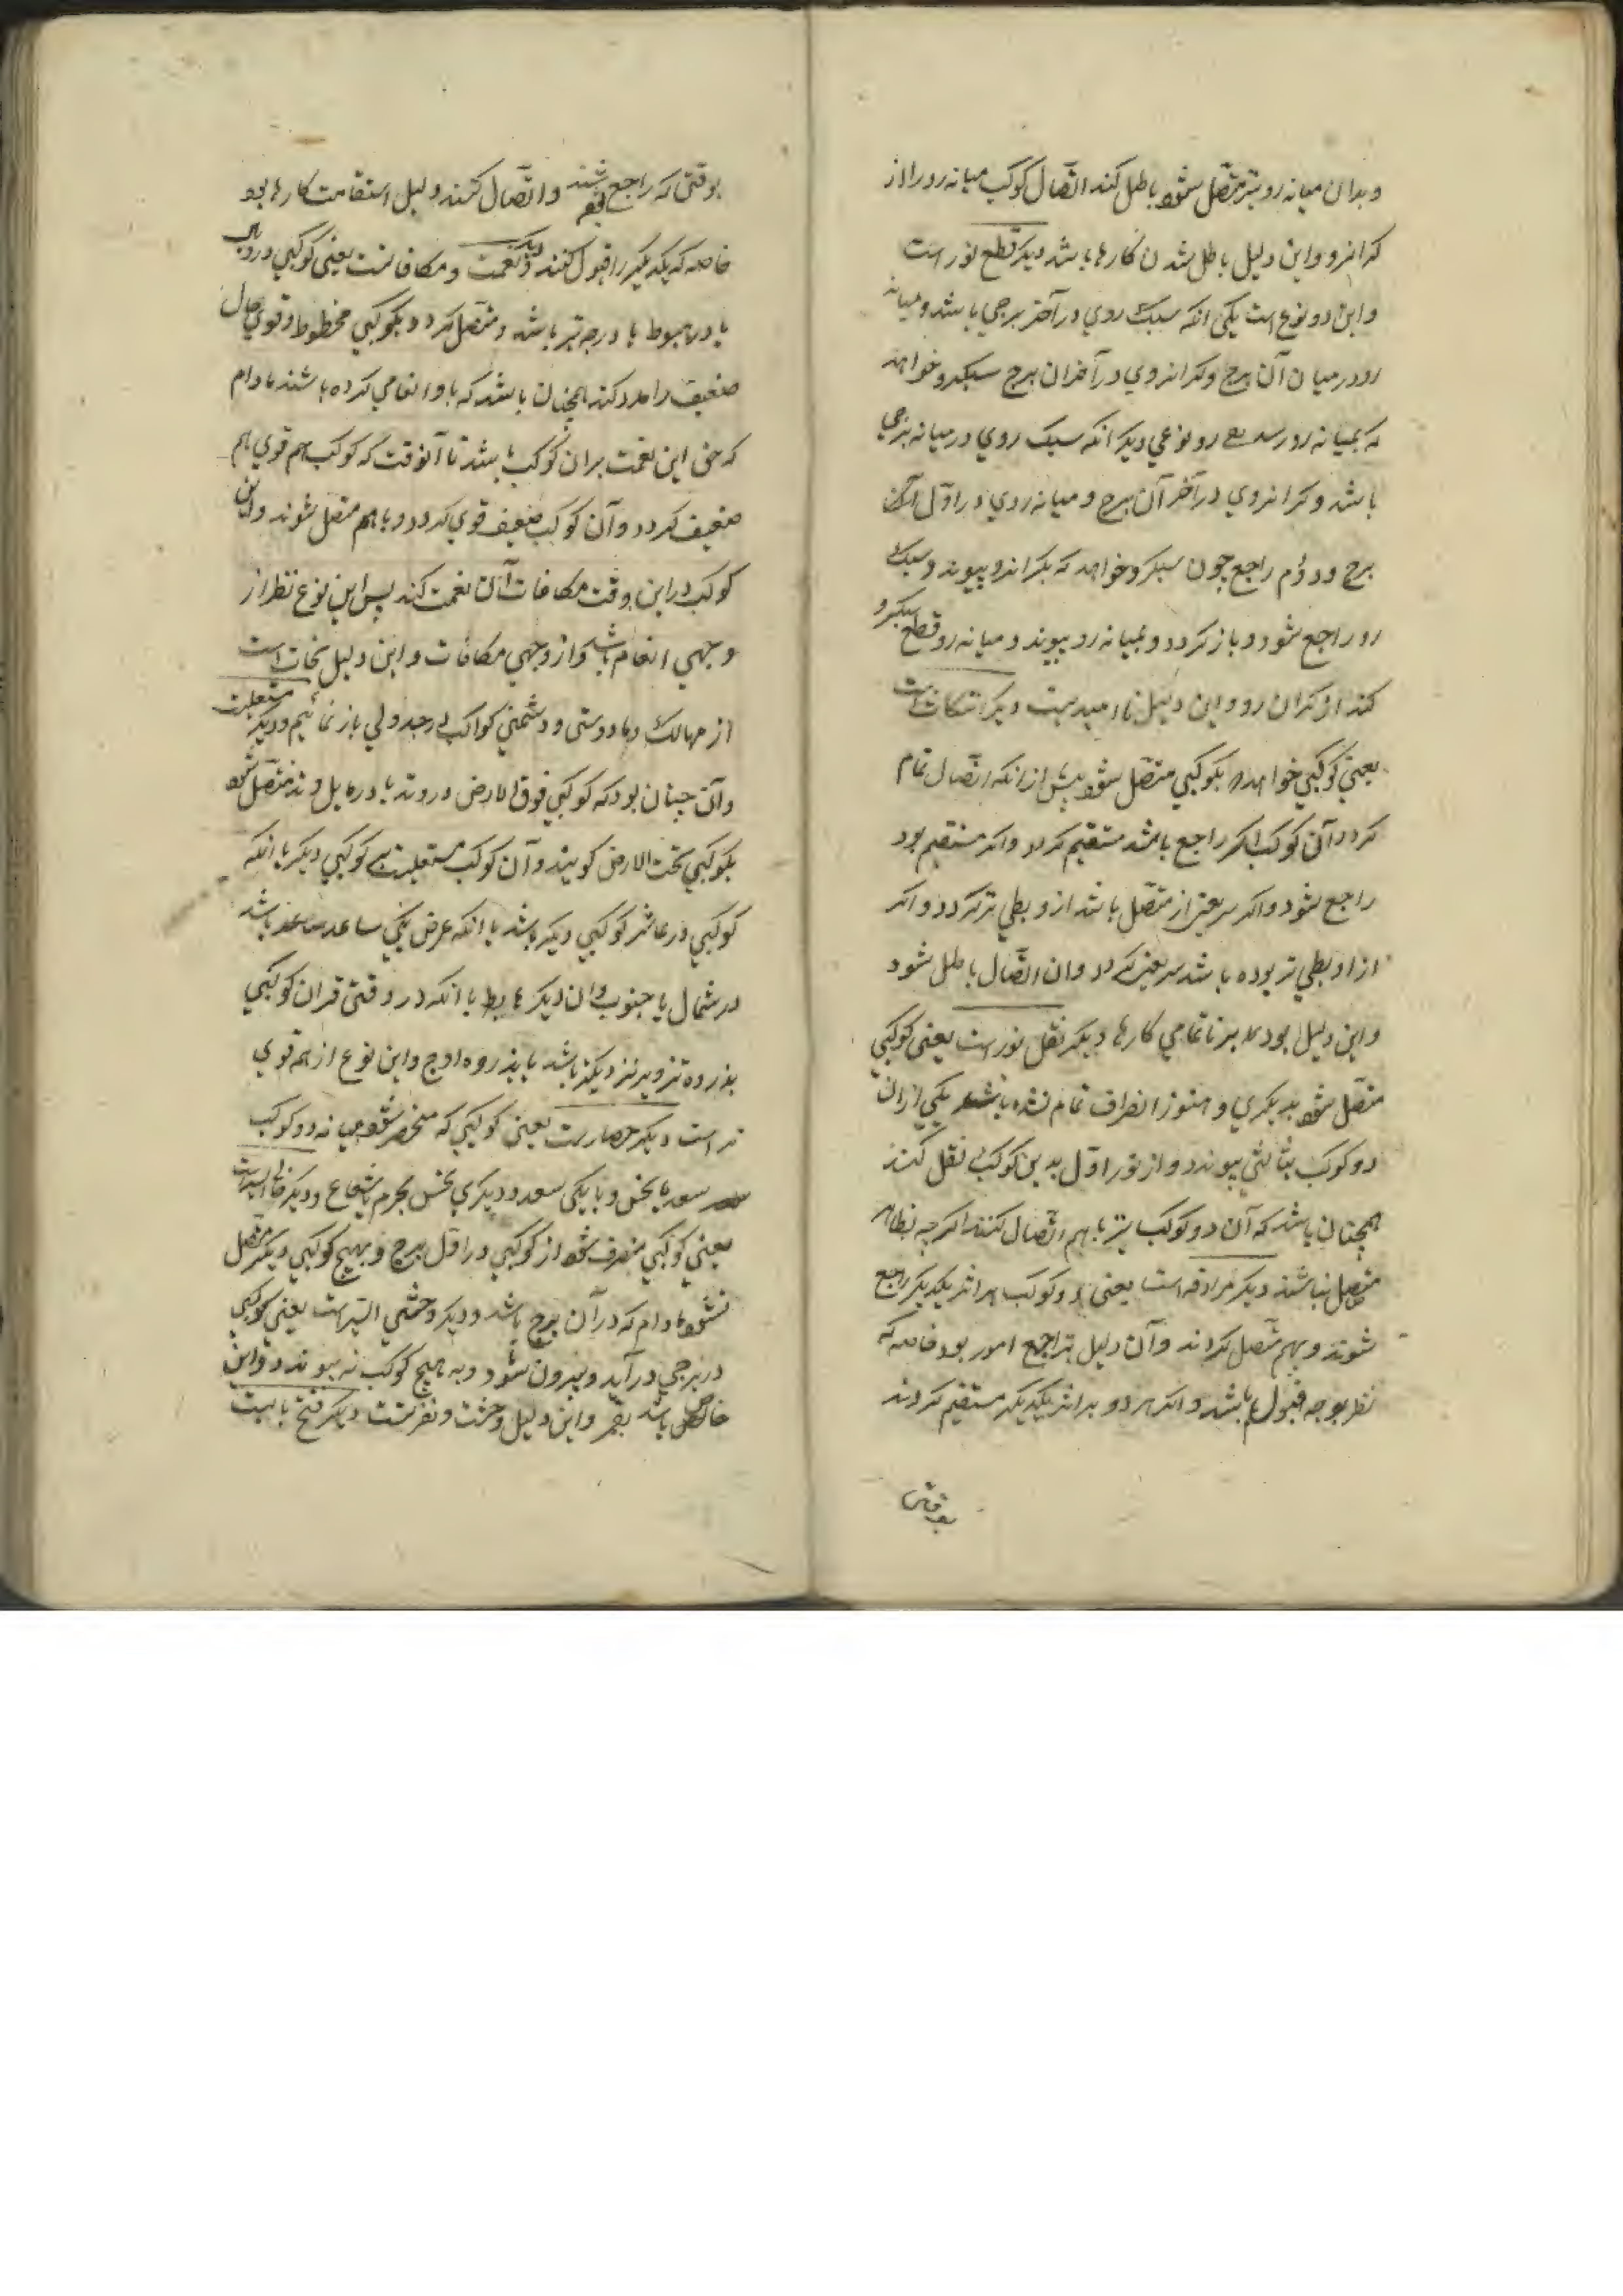 و بدان میانه رو نیز متصل شود باطل کند اتصال کوکب میانه رو را از
کرانرو و این دلیل باطل شدن کارها باشد دیکر قطع نور است
و این دو نوع است یکی انکه سبک روی در آخر برجی باشد و میانه
رو در میان آن برج و کرانروی در آخر ان برج سبکرو خواهد
که بمیانه رو رسد نوعی دیکر انکه سبک روی در میانه برجی
باشد و کرانروی در آخر آن برج و میانه روی در اول آن
برج دوم راجع چون سبکرو خواهد که بکرانرو پیوندد سبک
رو راجع شود و باز کردد و بمیانه رو پیوندد و میانه رو قطع سبکرو
کند از کران رو و این دلیل نا امیدیست دیکر انتکاث است
یعنی کوکبی خواهد که بکوکبی متصل شود پیش از انکه اتصال تمام
کردد آن کوکب اکر راجع باشد مستقیم کردد و اکر مستقیم بود
راجع شود و اکر سریعتر از متصل باشد از و بطی تر کردد و اکر
از او بطی تر بوده باشد سریعتر کردد و ان اتصال باطل شود
و این دلیل بود بر ناتمامی کارها دیکر نقل نور است یعنی کوکبی
متصل شود بدیکری و هنوز انصراف تمام نشده باشد یکی از ان
دو کوکب بثالثی پیوندد و از نور اول بدین کوکب نقل کند
همچنان باشد که آن دو کوکب نیز باهم اتصال کنند اکرچه بظاهر
متصل نباشند دیکر مرادفه است یعنی دو کوکب هر اثر یکدیکر راجع
شوند و بهم متصل کردند و آن دلیل تراجع امور بود خاصه که
نظر بوجه قبول باشد و اکر هر دو بر اثر یکدیکر مستقیم کردند
بوقتی
بوقتی که راجع شند و اتصال کنند دلیل استقامت کارها بود
خاصه که یکدیکر را قبول کنند دیکر نعمت و مکافاتست یعنی کوکبی در وبال
یا در هبوط یا درجه تیر باشد و متصل کردد بکوکبی محظوظ و قوی حال
ضعیف را مدد کند همچنان باشد که با او انعامی کرده باشند مادام
که حق این نعمت بر ان کوکب باشد تا آنوقت که کوکب هم قوی هم
ضعیف کردد و آن کوکب ضعیف قوی کردد و باهم متصل شوند و این
کوکب در این وقت مکافات آن نعمت کند پس این نوع نظر از
وجهی انعام باشد و از وجهی مکافات و این دلیل نجات است
از مهالک و ما دوستی و دشمنی کواکب در جدولی باز نمائیم و دیکر مستعلیست
و آن چنان بود که کوکبی فوق الارض در وتد یا در مایل وتد متصل شود
بکوکبی تحت الارض کویند و آن کوکب مستعلیست بر کوکبی دیکر یا انکه
کوکبی در عاشر کوکبی دیکر باشد یا انکه عرض یکی صاعد باشد
در شمال یا جنوب و ان دیکر هابط یا انکه در وقتی قران کوکبی
بذروه تدویر نزدیکتر باشد یا بذروه اوج و این نوع از همه قوی
تر است دیکر حصارست یعنی کوکبی که منحصر شود میانه دو کوکب
سعد یا نحس و یا یکی سعد و دیکری نحس بجرم یا شعاع و دیکر خالی السیرست
یعنی کوکبی منصرف شود از کوکبی در اول برج و بهیچ کوکبی دیکر متصل
نشود مادام که در آن برج باشد و دیکر وحشی السیرست یعنی کوکبی
در برجی در آید و بیرون شود و به هیچ کوکب نه پیوندد و این
خاص باشد بقمر و این دلیل وحشت و نفرتست دیکر فتح بابست